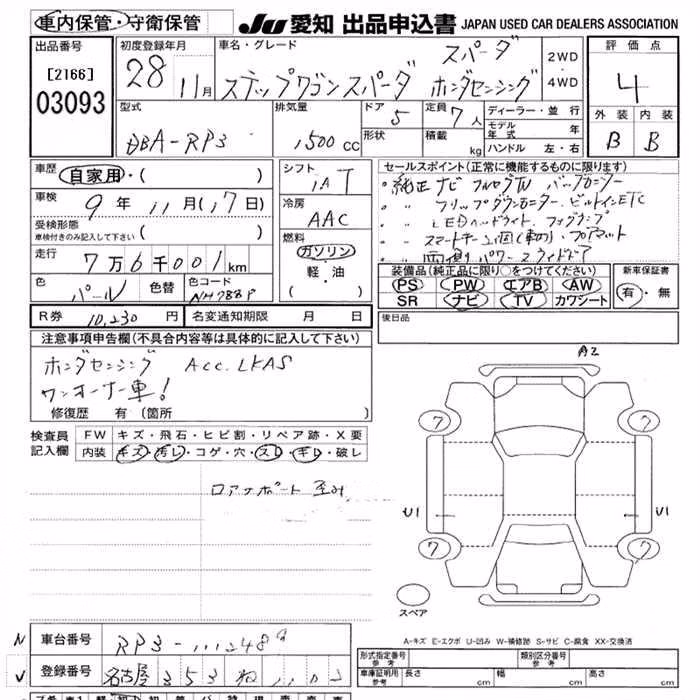 車内保管・守衛保管 JU 愛知 出品申込書 JAPAN USED CAR DEALERS ASSOCIATION
出品番号 初度登録年月 車名・グレード 評価点
[2166] 28 11月 ステップワゴンスパーダ スパーダ ホンダセンシング 2WD・4WD 4
03093
型式 排気量 ドア 定員 ディーラー・並行 外装 内装
DBA-RP3 1500cc 5 7人 モデル年式 年 B B
形状 積載 kg ハンドル 左・右
車歴 自家用・( ) シフト IA T セールスポイント(正常に機能するものに限ります)
車検 9年11月(17日) 冷房 AAC ・純正ナビ フルセグTV バックカメラー
・〃 フリップダウンモニター ビルトインETC
受検形態 車検付きのみ記入して下さい ( ) ・〃 LEDヘッドライト フォグランプ
走行 7万6千001km 燃料 ガソリン・軽・油 ( ) ・〃 スマートキー
・〃 両側パワースライドドア
色 パール 色替 色コード NH788P 装備品(純正品に限り○をつけてください) 新車保証書
PS PW エアB AW 有・無
SR ナビ TV カワシート
R券 10,230円 名変通知期限 月 日 後日品
注意事項申告欄(不具合内容等は具体的に記入して下さい)
ホンダセンシング ACC. LKAS
ワンオーナー車!
修復歴 有(箇所 )
A2
検査員記入欄 FW キズ・飛石・ヒビ割・リペア跡・X要
内装 キズ・汚レ・コゲ・穴・スレ・ギレ・破レ
7 7
U1 U1
7 7
スペア
A-キズ E-エクボ U-凹み W-補修跡 S-サビ C-腐食 XX-交換済
N 車台番号 RP3-
V 登録番号 名古屋 353
形式指定番号 参考 類別区分番号 参考
車庫証明用 参考 長さ cm 幅 cm 高さ cm